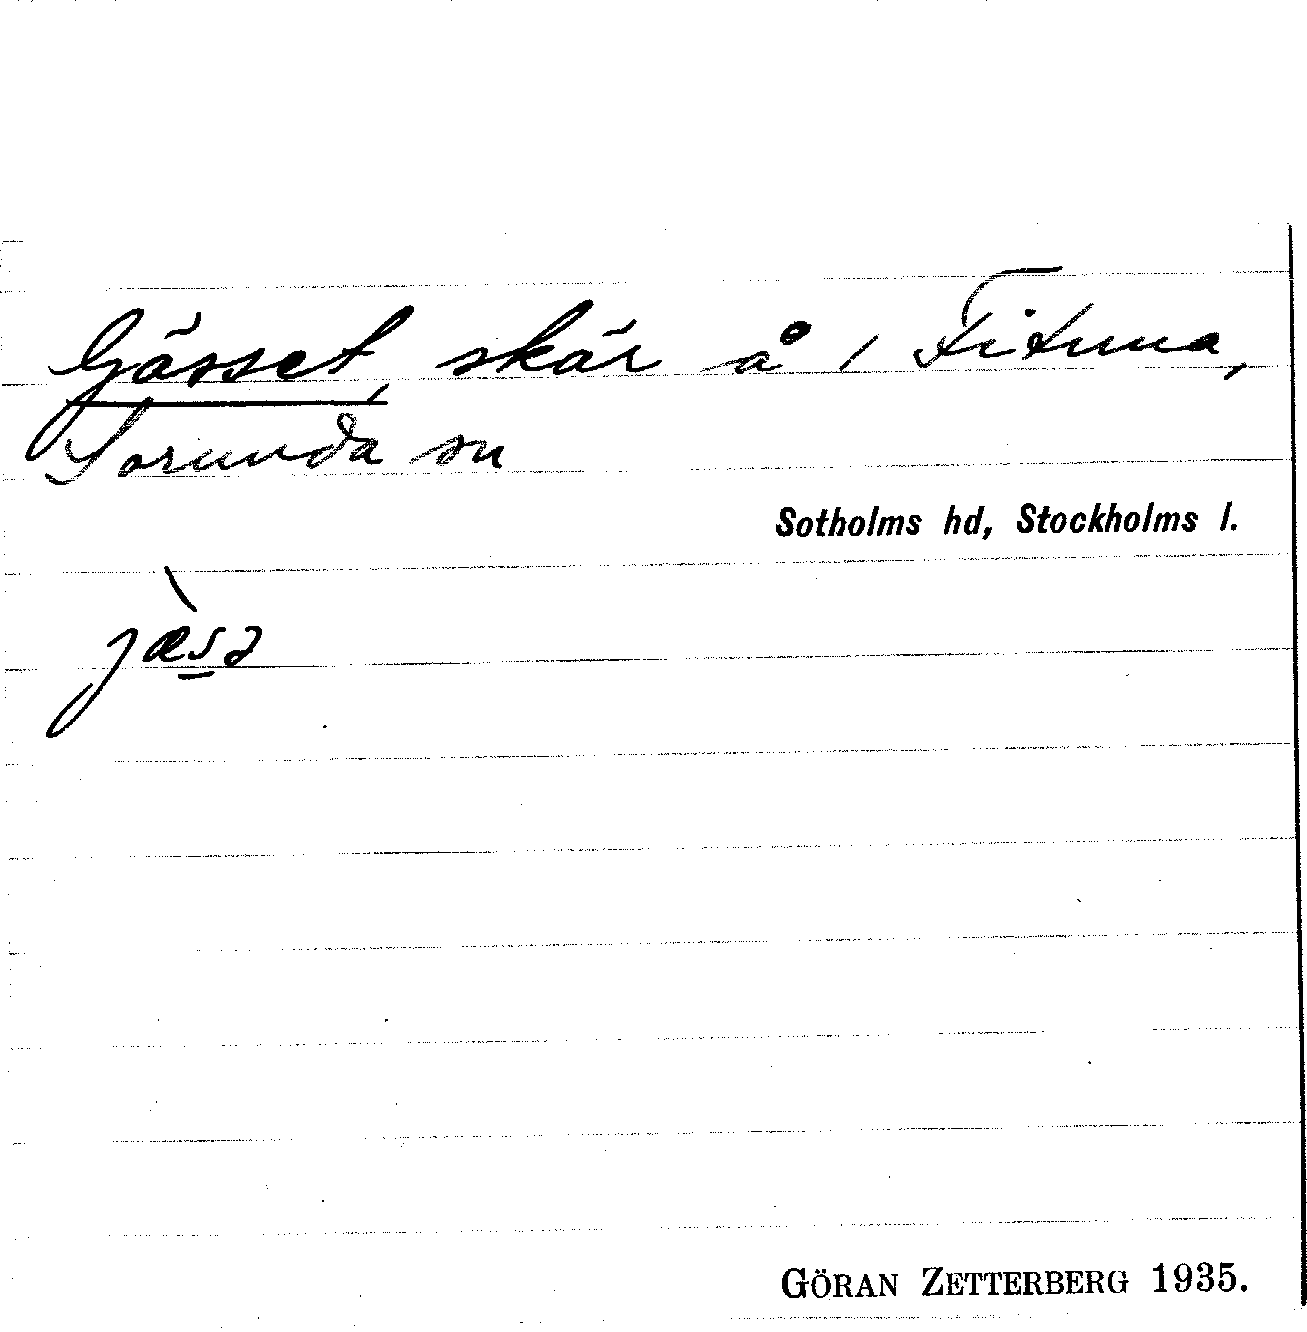 Gässet, skär å 1 Fituna,
Sorunda sn
Sotholms hd, Stockholms l.
jæ̀s̲ə
GÖRAN ZETTERBERG 1935.